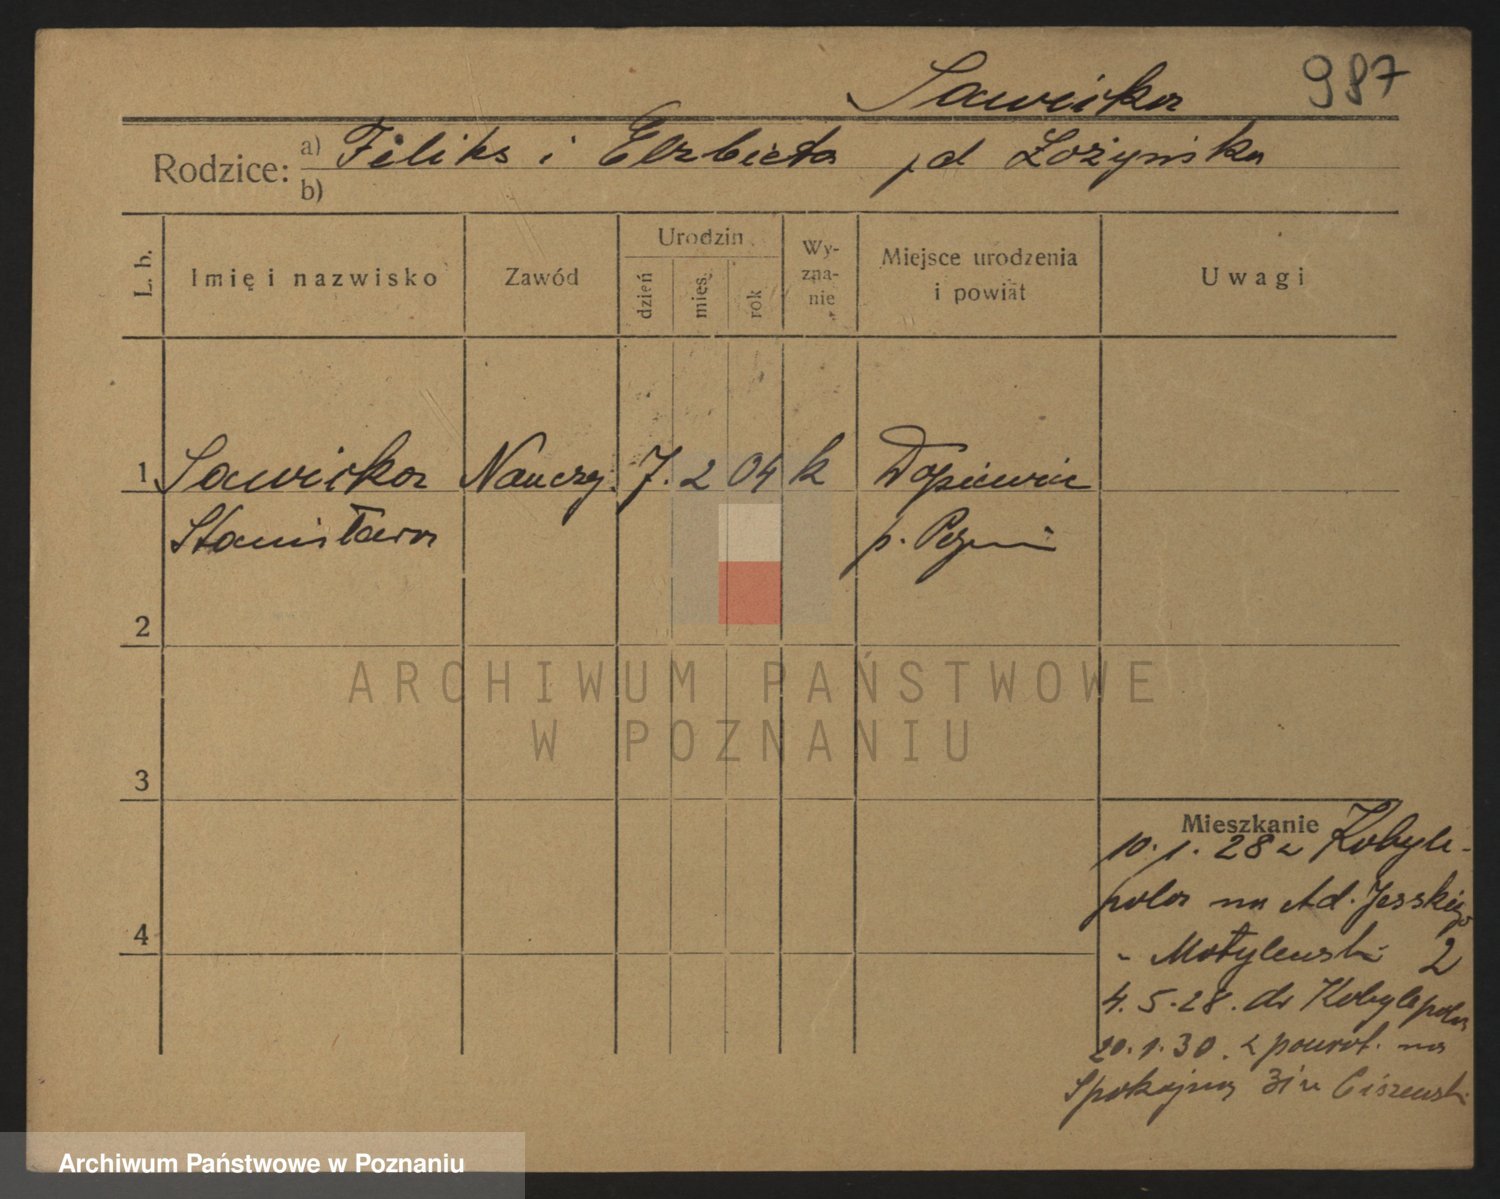 Sawicka 987
Rodzice: a) Feliks i Elżbieta d Łożyńska
b)
L. b.
Imię i nazwisko
Zawód
Urodzin
dzień
mies.
rok
Wy-
zna-
nie
Miejsce urodzenia
i powiat
Uwagi
1 Sawicka Nauczy. 7. 2 04 k Dopiewiec
Stanisława p. Pozn
2
3
4
Mieszkanie
10. 1. 28 z Kobyle-
pola na Ad. Jeskiego
- Motylewski 2
4. 5. 28. do Kobylepola
20. 1. 30. z powrot. na
Spokojną 31 u Ciszewski
ARCHIWUM PAŃSTWOWE
W POZNANIU
Archiwum Państwowe w Poznaniu